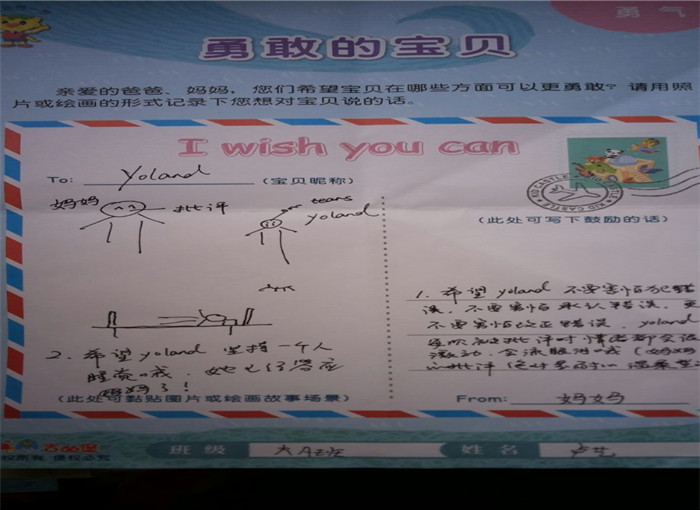 勇气
勇敢的宝贝
亲爱的爸爸、妈妈，您们希望宝贝在哪些方面可以更勇敢？请用照
片或绘画的形式记录下您想对宝贝说的话。
I wish you can
To: Yoland (宝贝昵称)
KID CASTLE KID CASTLE
妈妈 批评
tears
yoland
(此处可写下鼓励的话)
1. 希望 yoland 不要害怕犯错
误，不要害怕承认错误，更
不要害怕改正错误。yoland
激动，会流眼泪哦(妈妈
2. 希望 yoland 坚持一个人
睡觉哦，她已经答应
妈妈了！
(此处可黏贴图片或绘画故事场景)
From: 妈妈
吉的堡
权所有 侵权必究
班级
姓名